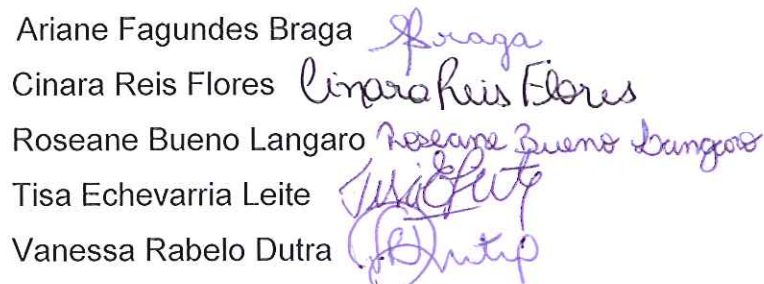 Ariane Fagundes Braga Braga
Cinara Reis Flores Cinara Reis Flores
Roseane Bueno Langaro Roseane Bueno Langaro
Tisa Echevarria Leite
Vanessa Rabelo Dutra Dutra